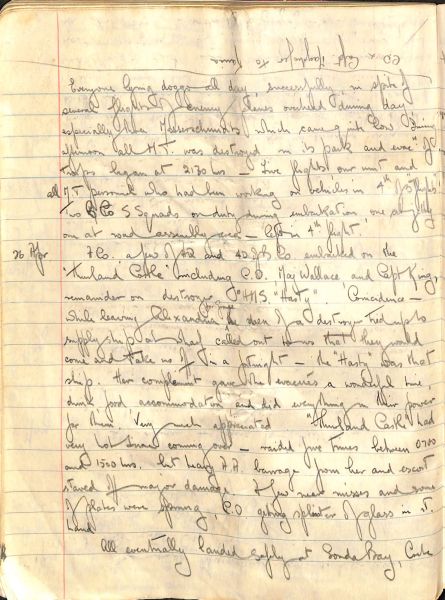 Everyone lying doggo all day, successfully, in spite of
several flights of enemy planes overhead during day
especially three Messerschmidts which came quite low. During
afternoon all M.T. was destroyed in its park and evac of
troops began at 2130 hrs — five flights our unit and
all M.T. personnel who had been working on vehicles in 4th of flights
two Co S Squads on duty during embarkation one at jetty
one at road assembly area — left in 4th flight.
26 Apr Co. a few of 42 and Co embarked on the
"Thurland Castle" including C.O., Maj Wallace and Capt King,
remainder on destroyer "H.M.S. "Hasty". Coincidence —
while leaving Alexandria the men of a destroyer tied up to
supply ship at wharf called out to us that they would
come and take us off in a fortnight — the "Hasty" was that
ship. Her complement gave the evacuees a wonderful time,
drink food accommodation and did everything in their power
for them. Very much appreciated "Thurland Castle" had
very hot time coming over — raided five times between 0700
and 1500 hrs, but heavy A.A. barrage from her and escort
staved off major damage. A few near misses and some
plates were sprung, C.O. getting splinter of glass in
hand
All eventually landed safely at Souda Bay, Crete